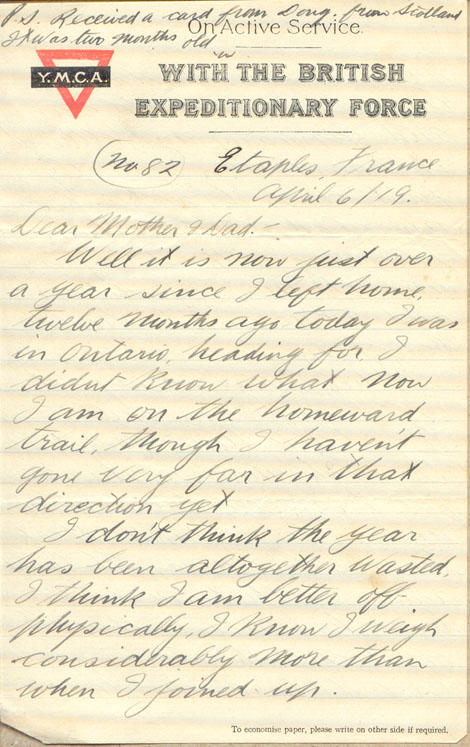 P.S. Received a card from Doug. from Scotland
It was two months old
On Active Service.
Y.M.C.A.
WITH THE BRITISH
EXPEDITIONARY FORCE
No 82
Etaples, France
April 6/19.
Dear Mother & Dad.-
Well it is now just over
a year since I left home,
twelve months ago today I was
in Ontario, heading for I
didnt know what now
I am on the homeward
trail, though I haven't
gone very far in that
direction yet
I don't think the year
has been altogether wasted,
I think I am better off
physically, I know I weigh
considerably more than
when I joined up.
To economise paper, please write on other side if required.